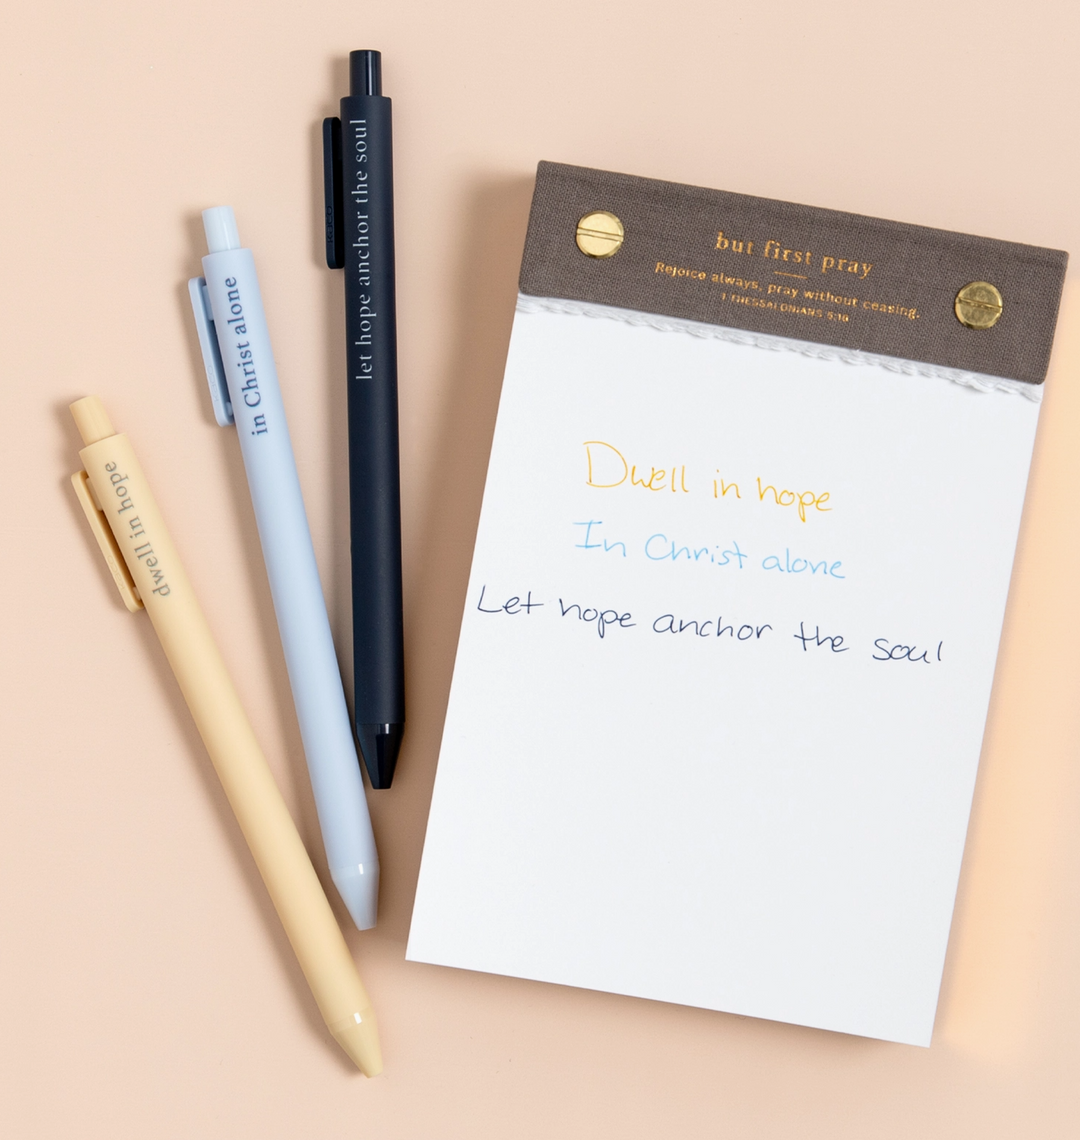 let hope anchor the soul
in Christ alone
dwell in hope
but first pray
Rejoice always, pray without ceasing.
1 THESSALONIANS 5:16
Dwell in hope
In Christ alone
Let hope anchor the soul